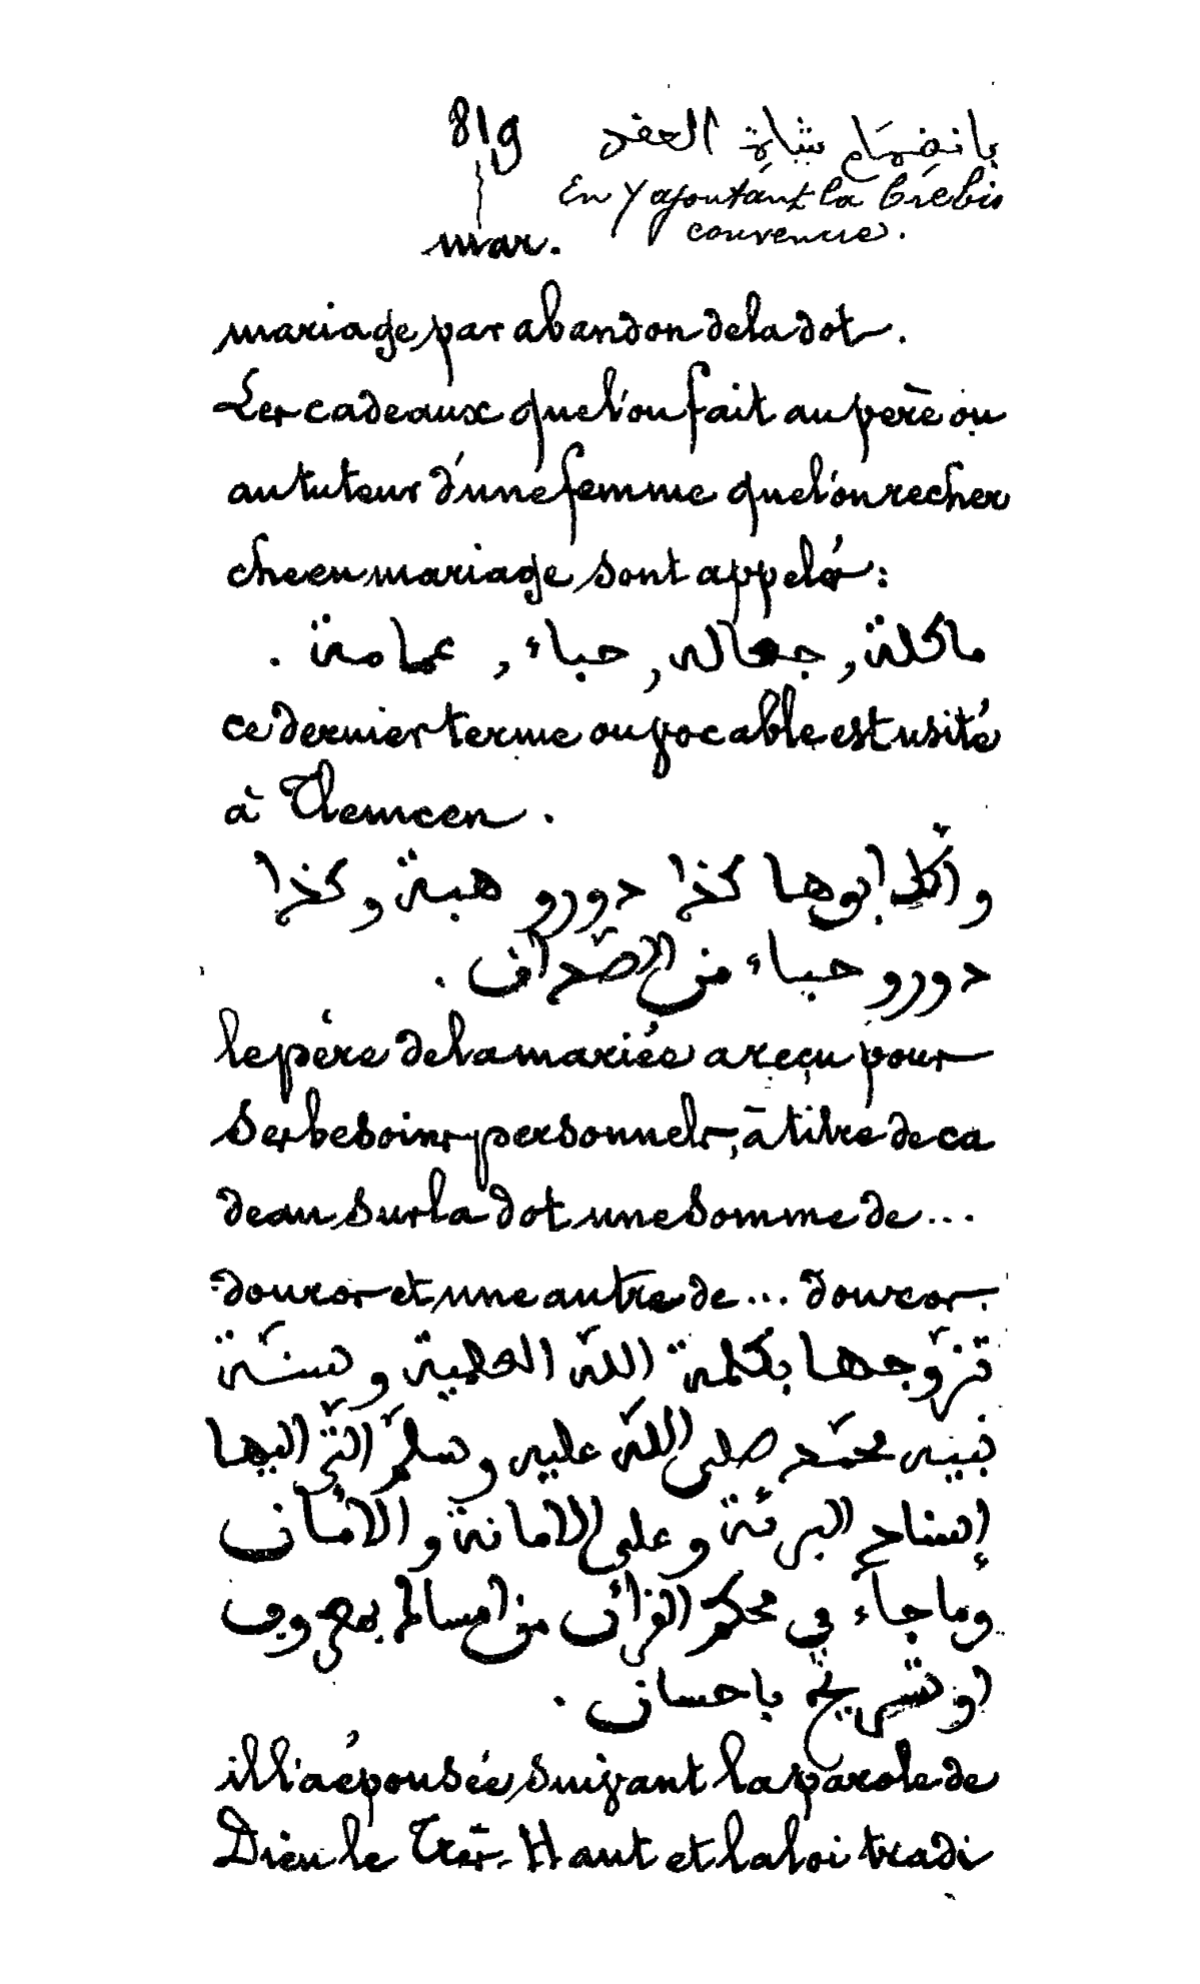 819
بانضمام شاة العقد
En y ajoutant la brebis
convenue.
mar.
mariage par abandon de la dot.
Les cadeaux que l'on fait au père ou
au tuteur d'une femme que l'on recher
che en mariage sont appelés :
ماكلة, جعاله, حباء, عمامة .
ce dernier terme ou vocable est usité
à Tlemcen .
وأكل ابوها كذا دورو هبة وكذا
دورو حباء من الصّداف .
le père de la mariée a reçu pour
ses besoins personnels, à titre de ca
deau sur la dot une somme de ...
douros et une autre de ... douros.
تزوّجها بكلمة اللّه العلية وسنّة
نبيه محمّد صلى اللّه عليه وسلّم الّتي اليها
البرئة وعلى الامانة والامان
وما جاء في محكم القرائن من امساك بمعروف
او تسريح باحسان .
il l'a épousée suivant la parole de
Dieu le Très-Haut et la loi tradi